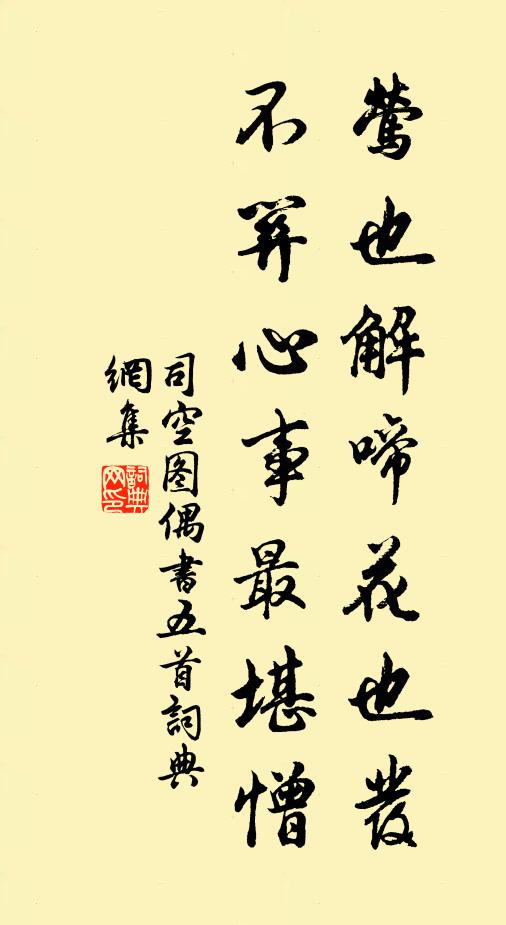 鶯也解啼花也發
不關心事最堪憎
司空图偶書五首詞典
網集
詞典
网印